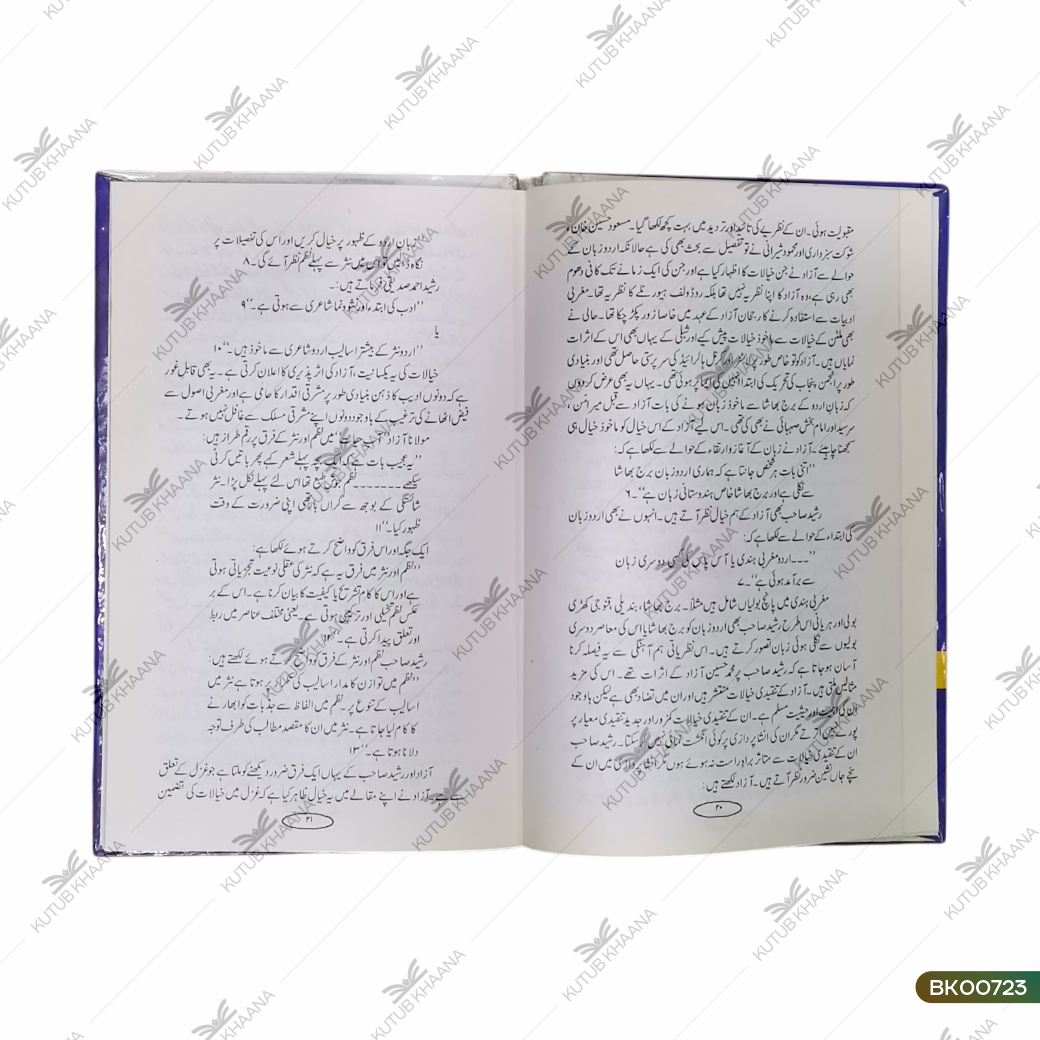 مقبولیت ہوئی۔ ان کے نظریے کی تائید اور تردید میں بہت کچھ لکھا گیا۔ مسعود حسین خان،
شوکت سبزواری اور محمود شیرانی نے تو تفصیل سے بحث بھی کی ہے حالانکہ اردو زبان کے
حوالے سے آزاد نے جن خیالات کا اظہار کیا ہے اور جن کی ایک زمانے تک کافی دھوم
بھی رہی ہے، وہ آزاد کا اپنا نظریہ نہیں تھا بلکہ روڈولف ہیورنلے کا نظریہ تھا۔ مغربی
ادبیات سے استفادہ کرنے کا رجحان آزاد کے عہد میں خاصا زور پکڑ چکا تھا۔ حالی نے
بھی ملٹن کے خیالات سے ماخوذ خیالات پیش کیے اور شبلی کے یہاں بھی اس کے اثرات
نمایاں ہیں۔ آزاد کو تو خاص طور پر اور کرنل ہالرائیڈ کی سرپرستی حاصل تھی اور بنیادی
طور پر انجمن پنجاب کی تحریک کی ابتدا انہیں کی ایما پر ہوئی تھی۔ یہاں یہ بھی عرض کردوں
کہ زبان اردو کے برج بھاشا سے ماخوذ زبان ہونے کی بات آزاد سے قبل میر امن،
سرسید اور امام بخش صہبائی نے بھی کی تھی۔ اس لیے آزاد کے اس خیال کو ماخوذ خیال ہی
سمجھنا چاہئیے۔ آزاد نے زبان کے آغاز و ارتقاء کے حوالے سے لکھا ہے کہ:
''اتنی بات ہر شخص جانتا ہے کہ ہماری اردو زبان برج بھاشا
سے نکلی ہے اور برج بھاشا خاص ہندوستانی زبان ہے''۔ ۶
رشید صاحب بھی آزاد کے ہم خیال نظر آتے ہیں۔ انہوں نے بھی اردو زبان
کی ابتداء کے حوالے سے لکھا ہے کہ:
''۔۔۔اردو مغربی ہندی یا آس پاس کی کسی دوسری زبان
سے برآمد ہوئی ہے''۔ ۷
مغربی ہندی میں پانچ بولیاں شامل ہیں مثلاً۔ برج بھاشا، بندیلی، قنوجی کھڑی
بولی اور ہریانی اس طرح رشید صاحب بھی اردو زبان کو برج بھاشا یا اس کی معاصر دوسری
بولیوں سے نکلی ہوئی زبان تصور کرتے ہیں۔ اس نظریاتی ہم آہنگی سے یہ فیصلہ کرنا
آسان ہوجاتا ہے کہ رشید صاحب پر محمد حسین آزاد کے اثرات تھے۔ اس کی مزید
مثالیں ملتی ہیں۔ آزاد کے تنقیدی خیالات منتشر ہیں اور ان میں تضاد بھی ہے لیکن باوجود
ان کی اہمیت اور حیثیت مسلم ہے۔ ان کے تنقیدی خیالات کمزور اور جدید تنقیدی معیار پر
پورے نہیں اترتے مگر ان کی انشا پردازی پر کوئی انگشت نمائی نہیں کرسکتا۔ رشید صاحب
ان کے تنقیدی خیالات سے متاثر براہ راست نہ ہوئے ہوں مگر انشا پردازی میں ان کے
سچے جانشین ضرور نظر آتے ہیں۔ آزاد لکھتے ہیں:
۲۰
''زبان اردو کے ظہور پر خیال کریں اور اس کی تفصیلات پر
نگاہ ڈالیں تو اس میں نثر سے پہلے نظم نظر آئے گی۔ ۸
رشید احمد صدیقی فرماتے ہیں:۔
''ادب کی ابتدا اور نشوونما شاعری سے ہوتی ہے۔'' ۹
یا
''اردو نثر کے بیشتر اسالیب اردو شاعری سے ماخوذ ہیں۔'' ۱۰
خیالات کی یہ یکسانیت، آزاد کی اثر پذیری کا اعلان کرتی ہے۔ یہ بھی قابل غور
ہے کہ دونوں ادیب کا ذہن بنیادی طور پر مشرقی اقدار کا حامی ہے اور مغربی اصول سے
فیض اٹھانے کی ترغیب کے باوجود دونوں اپنے مشرقی مسلک سے غافل نہیں ہوتے۔
مولانا آزاد ''آب حیات'' میں نظم اور نثر کے فرق پر رقم طراز ہیں:
''یہ عجیب بات ہے کہ ایک بچہ پہلے شعر کہے پھر باتیں کرنی
سیکھے۔۔۔۔۔۔۔نظم جوش طبع تھا اس لئے پہلے نکل پڑا۔ نثر
شائستگی کے بوجھ سے گراں بار تھی اپنی ضرورت کے وقت
ظہور کیا۔'' ۱۱
ایک جگہ اور اس فرق کو واضح کرتے ہوئے لکھا ہے:
''نظم اور نثر میں فرق یہ ہے کہ نثر کی عقلی نوعیت تجزیاتی ہوتی
ہے اور اس کا کام تشریح یا کیفیت کا بیان کرنا ہے۔ اس کے بر
عکس نظم تخیلی اور ترکیبی ہوتی ہے۔ یعنی مختلف عناصر میں ربط
اور تعلق پیدا کرنی ہے۔'' ۱۲
رشید صاحب نظم اور نثر کے فرق کو واضح کرتے ہوئے لکھتے ہیں:
''نظم میں توازن کا مدار اسالیب کی تکرار پر ہوتا ہے نثر میں
اسالیب کے تنوع پر۔ نظم میں الفاظ سے جذبات کو ابھارنے
کا کام لیا جاتا ہے۔ نثر میں ان کا مقصد مطالب کی طرف توجہ
دلانا ہوتا ہے۔'' ۱۳
آزاد اور رشید صاحب کے یہاں ایک فرق ضرور دیکھنے کو ملتا ہے جو غزل کے تعلق
سے ہے۔ آزاد نے اپنے مقالے میں یہ خیال ظاہر کیا ہے کہ غزل میں خیالات کی تضمین
۲۱
KUTUB KHAANA
BK00723